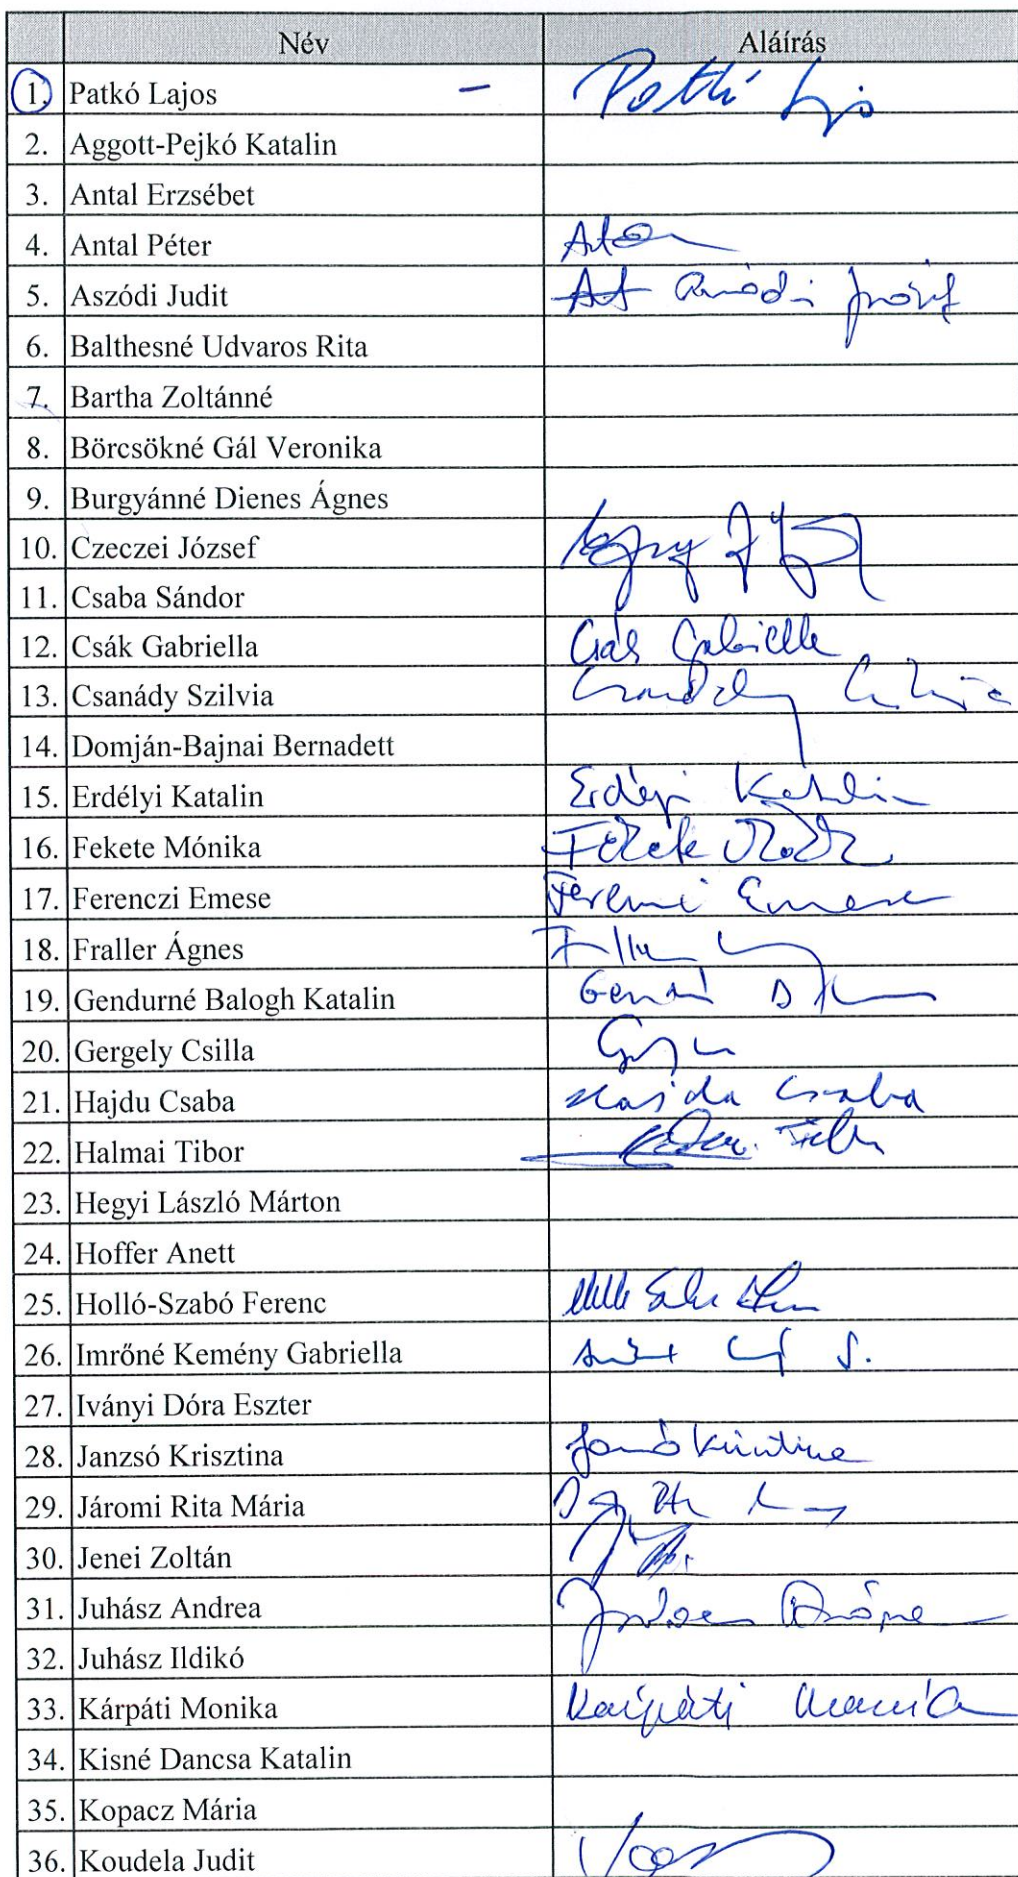 Név Aláírás
1. Patkó Lajos – Patkó Lajos
2. Aggott-Pejkó Katalin
3. Antal Erzsébet
4. Antal Péter
5. Aszódi Judit
6. Balthesné Udvaros Rita
7. Bartha Zoltánné
8. Börcsökné Gál Veronika
9. Burgyánné Dienes Ágnes
10. Czeczei József
11. Csaba Sándor
12. Csák Gabriella Csák Gabriella
13. Csanády Szilvia Csanády Szilvia
14. Domján-Bajnai Bernadett
15. Erdélyi Katalin Erdélyi Katalin
16. Fekete Mónika Fekete Mónika
17. Ferenczi Emese Ferenczi Emese
18. Fraller Ágnes
19. Gendurné Balogh Katalin
20. Gergely Csilla
21. Hajdu Csaba Hajdu Csaba
22. Halmai Tibor
23. Hegyi László Márton
24. Hoffer Anett
25. Holló-Szabó Ferenc
26. Imrőné Kemény Gabriella
27. Iványi Dóra Eszter
28. Janzsó Krisztina Janzsó Krisztina
29. Járomi Rita Mária
30. Jenei Zoltán
31. Juhász Andrea Juhász Andrea
32. Juhász Ildikó
33. Kárpáti Monika Kárpáti Monika
34. Kisné Dancsa Katalin
35. Kopacz Mária
36. Koudela Judit